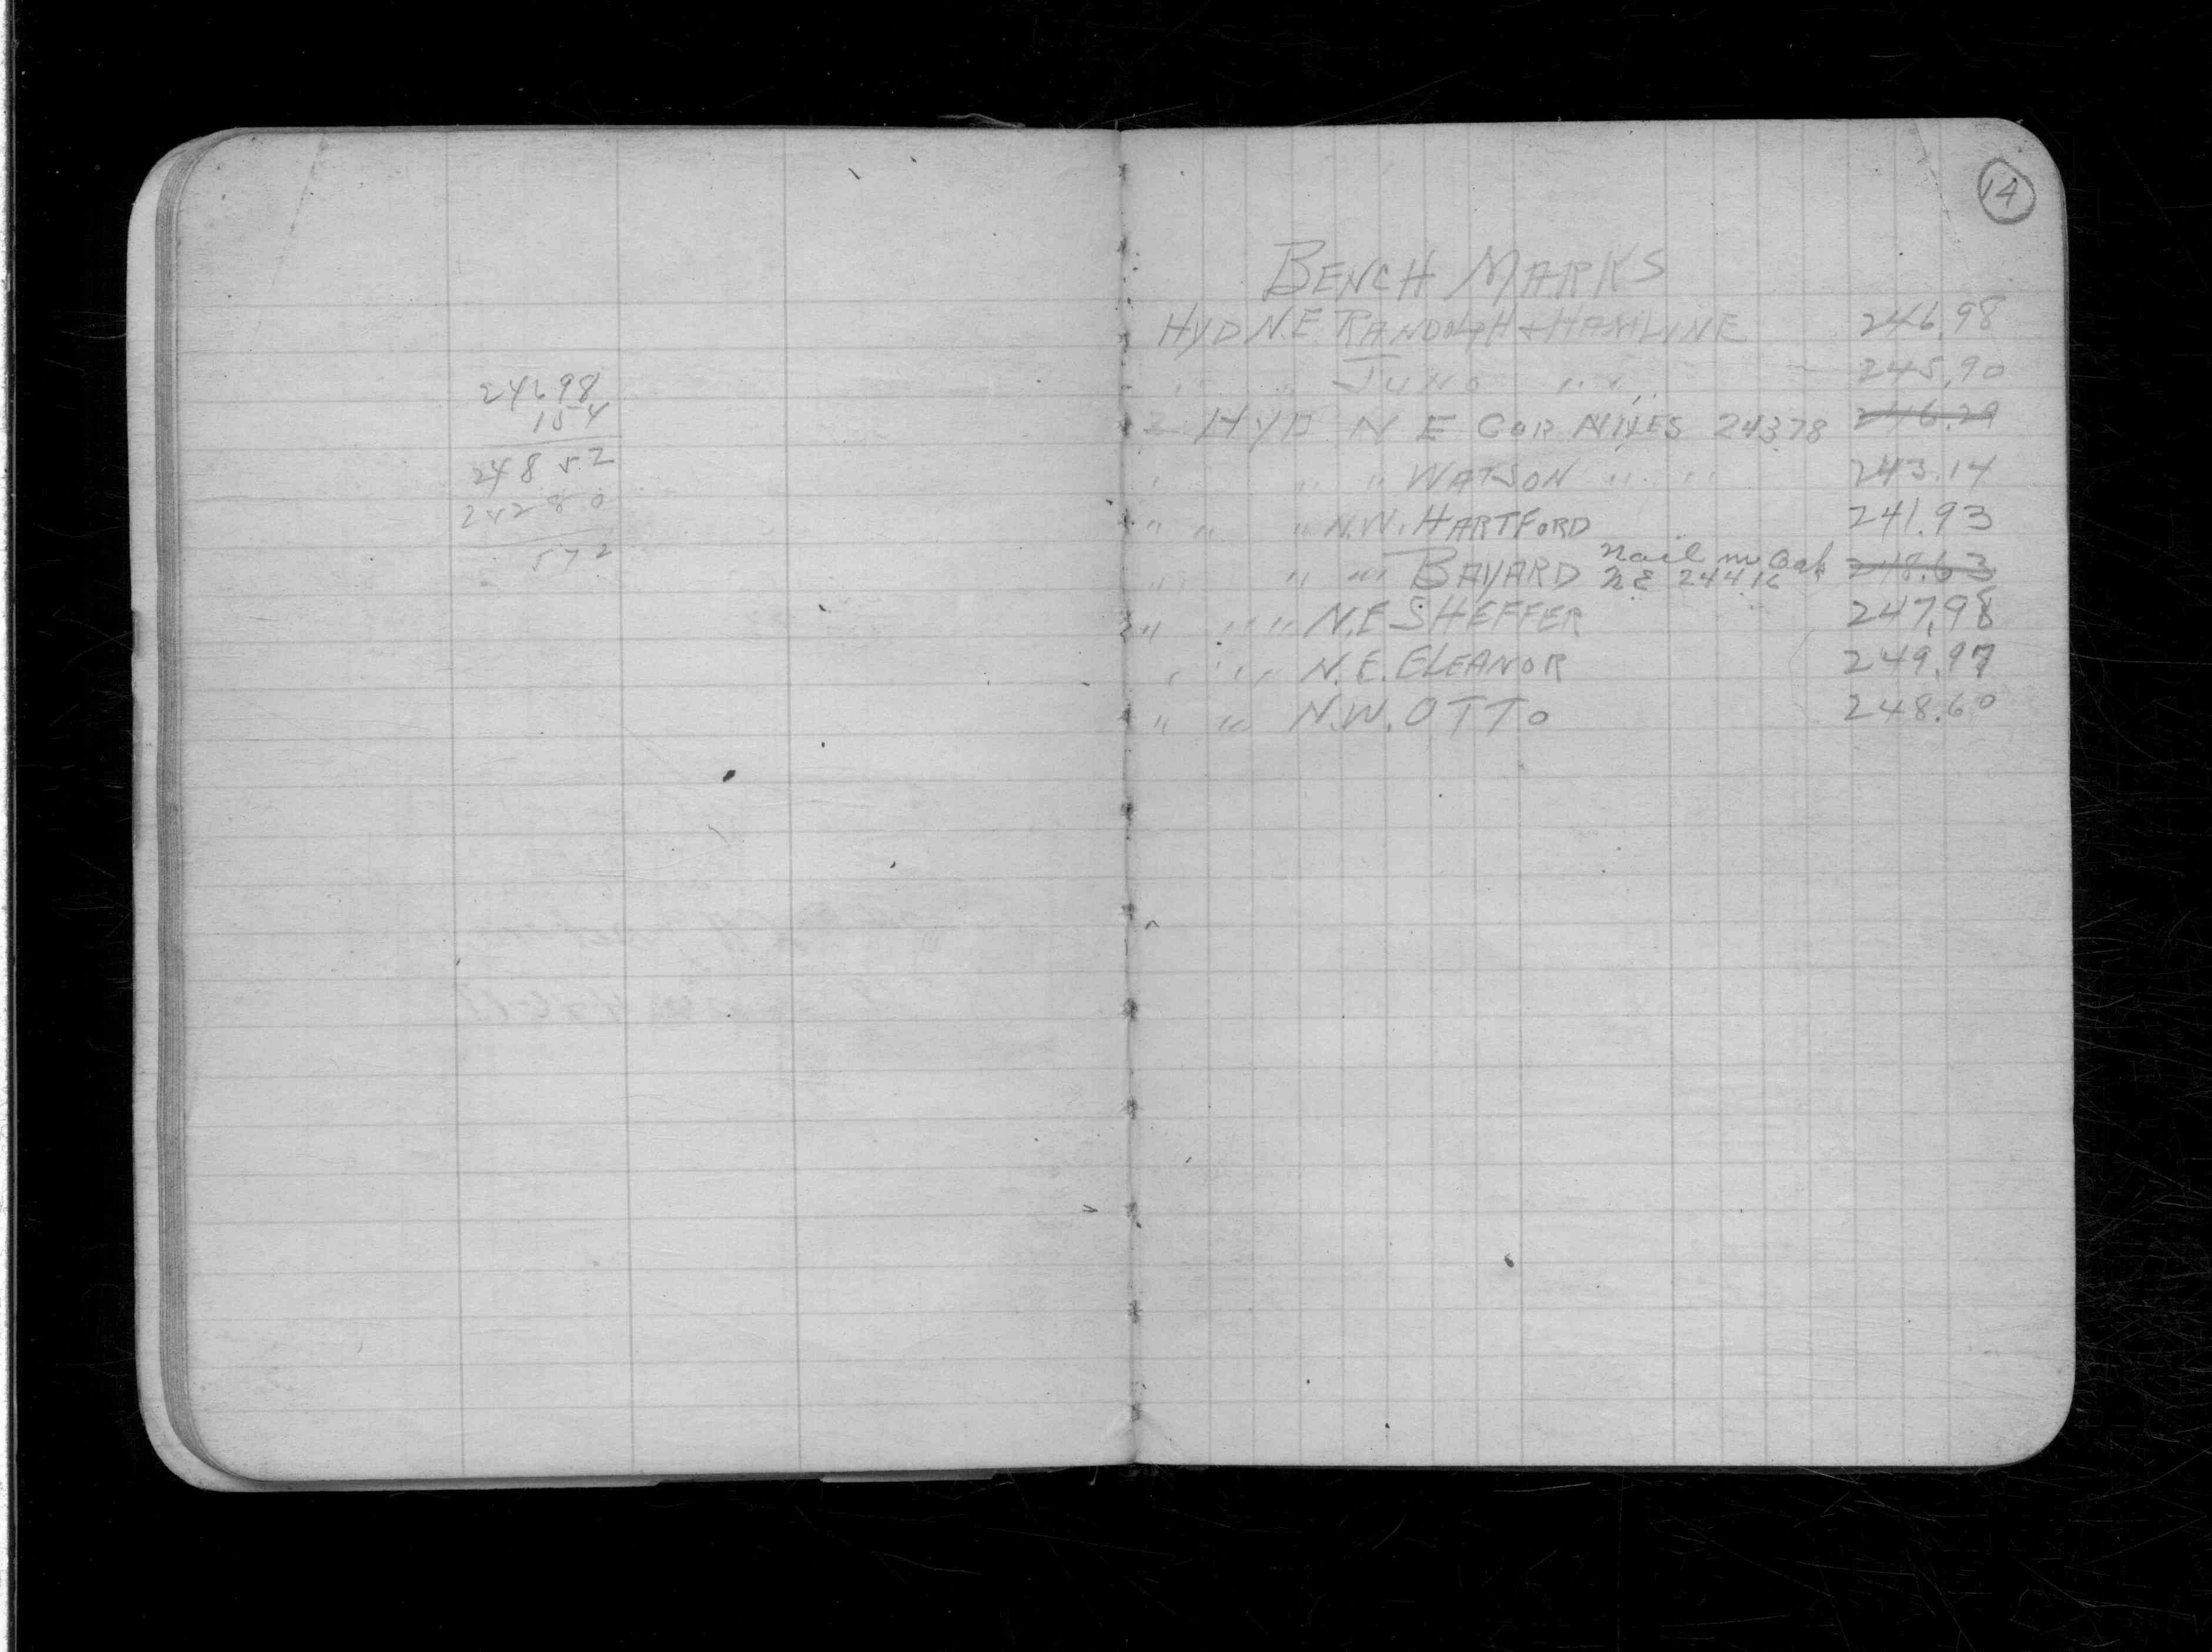 24698
154
24852
24280
572
14
BENCH MARKS
HYD N.E. RANDOLPH & HAMLINE 246.98
" " JUNO " " 245.90
2 HYD N E COR NILES 24378 246.29
" " " WATSON " " 243.14
" " " N.W. HARTFORD 241.93
" " " " BAYARD Nail in Oak 248.63
N E 244.16
" " " N.E SHEFFER 247.98
" " " N.E. ELEANOR 249.97
" " N.W. OTTO 248.60